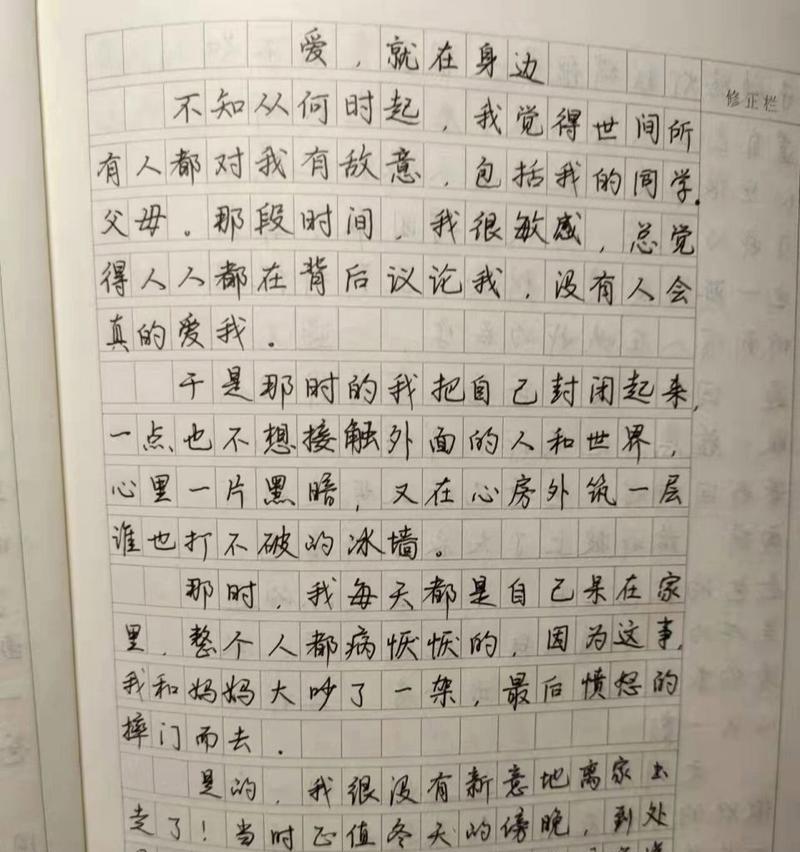 爱，就在身边
修正栏
不知从何时起，我觉得世间所
有人都对我有敌意，包括我的同学，
父母。那段时间，我很敏感，总觉
得人人都在背后议论我，没有人会
真的爱我。
于是那时的我把自己封闭起来，
一点也不想接触外面的人和世界，
心里一片黑暗，又在心房外筑一层
谁也打不破的冰墙。
那时，我每天都是自己呆在家
里，整个人都病恹恹的，因为这事，
我和妈妈大吵了一架，最后愤怒的
摔门而去。
是的，我很没有新意地离家出
走了！当时正值冬天的傍晚，到处